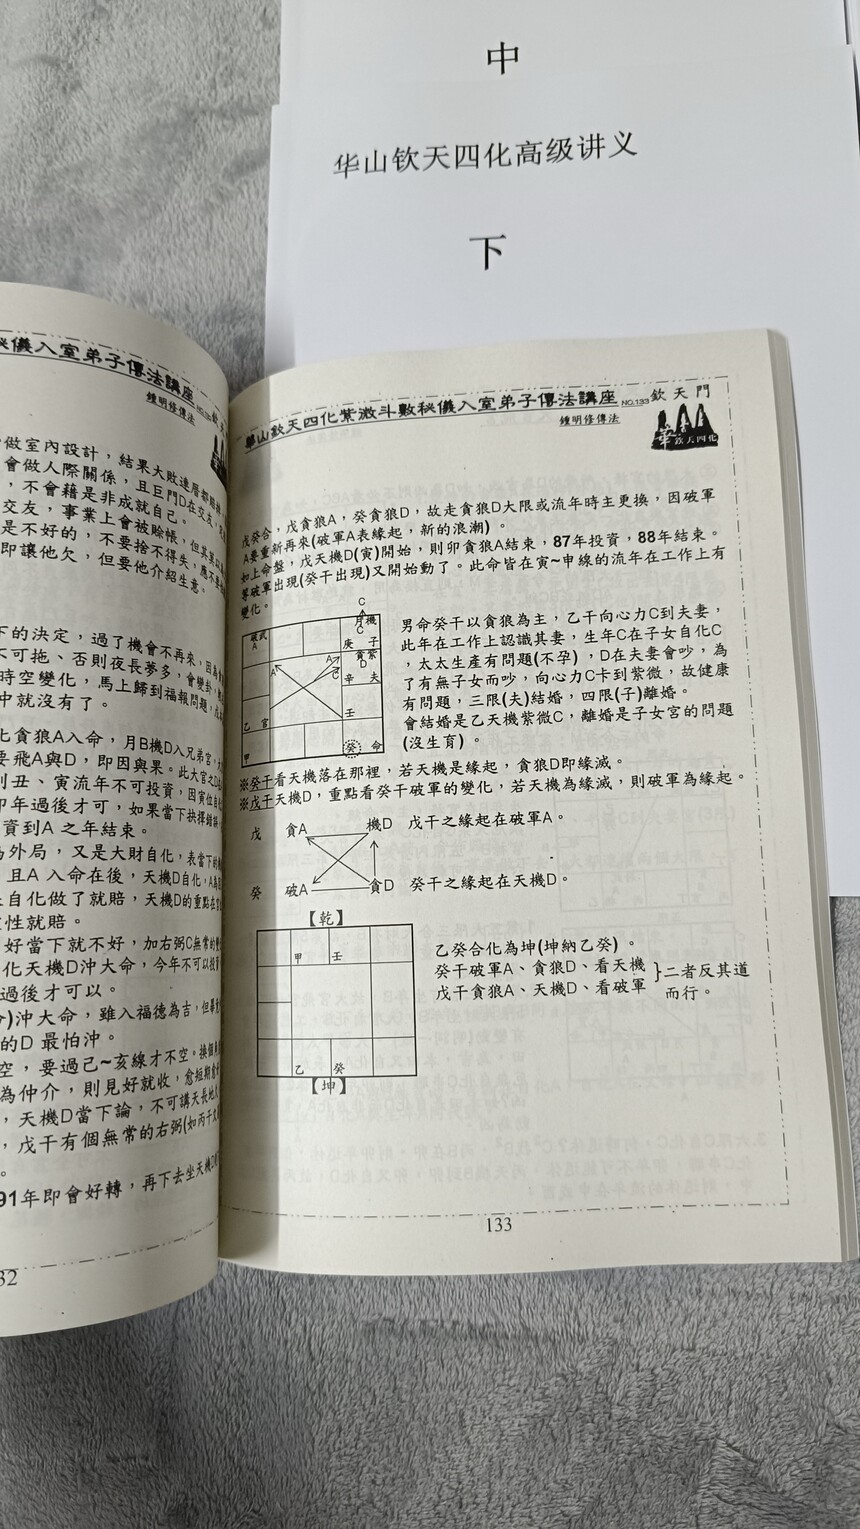 中
华山钦天四化高级讲义
下
秘儀入室弟子傳法講座
鍾明修傳法
做室內設計，結果大敗
會做人際關係，且巨門D在交友，
，不會藉是非成就自己。
交友，事業上會被賒帳，但其
是不好的，不要捨不得失，應
即讓他欠，但要他介紹生意。
下的決定，過了機會不再來，因
不可拖、否則夜長夢多，會變卦
時空變化，馬上歸到福報問題，
中就沒有了。
化貪狼A入命，月B機D入兄弟宮，
要飛A與D，即因與果。此大官之
則丑、寅流年不可投資，因寅位自
卯年過後才可，如果當下抉擇錯
資到A 之年結束。
為外局，又是大財自化，表當下的
且A 入命在後，天機D自化，A為
自化做了就賠，天機D的重點在
性就賠。
好當下就不好，加右弼C無常的
化天機D沖大命，今年不可以投資
過後才可以。
)沖大命，雖入福德為吉，但畢
的D 最怕沖。
空，要過己~亥線才不空。換個
為仲介，則見好就收，愈短期愈
，天機D當下論，不可講天長地
，戊干有個無常的右弼(如丙干
。
91年即會好轉，再下去坐天機D
32
華山欽天四化紫微斗數秘儀入室弟子傳法講座 NO.133 欽天門
鍾明修傳法
華山
欽天四化
戊癸合，戊貪狼A，癸貪狼D，故走貪狼D大限或流年時主更換，因破軍
A要重新再來(破軍A表緣起，新的浪潮)。
如上命盤，戊天機D(寅)開始，則卯貪狼A結束，87年投資，88年結束。
等破軍出現(癸干出現)又開始動了。此命皆在寅~申線的流年在工作上有
變化。
C
破武
A
月機
C
庚 子
貪紫
D
A
A
C
辛 夫
乙 官
壬
甲
癸 命
男命癸干以貪狼為主，乙干向心力C到夫妻，
此年在工作上認識其妻，生年C在子女自化C
，太太生產有問題(不孕)，D在夫妻會吵，為
了有無子女而吵，向心力C卡到紫微，故健康
有問題，三限(夫)結婚，四限(子)離婚。
會結婚是乙天機紫微C，離婚是子女宮的問題
(沒生育)。
※癸干看天機落在那裡，若天機是緣起，貪狼D即緣滅。
※戊干天機D，重點看癸干破軍的變化，若天機為緣滅，則破軍為緣起。
戊 貪A 機D 戊干之緣起在破軍A。
癸 破A 貪D 癸干之緣起在天機D。
【乾】
甲 壬
乙 癸
【坤】
乙癸合化為坤(坤納乙癸)。
癸干破軍A、貪狼D、看天機
戊干貪狼A、天機D、看破軍
}二者反其道
而行。
133